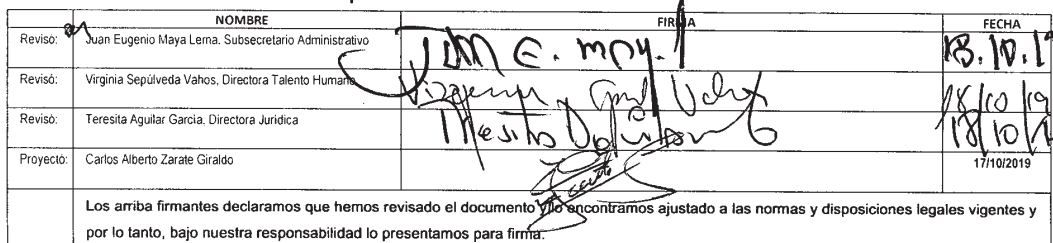 NOMBRE FIRMA FECHA
Revisó: Juan Eugenio Maya Lema. Subsecretario Administrativo Juan E. May. 18.10.19
Revisó: Virginia Sepúlveda Vahos, Directora Talento Humano 18/10/19
Revisó: Teresita Aguilar Garcia, Directora Juridica Teresita 18/10/
Proyectó: Carlos Alberto Zarate Giraldo 17/10/2019
Los arriba firmantes declaramos que hemos revisado el documento y lo encontramos ajustado a las normas y disposiciones legales vigentes y
por lo tanto, bajo nuestra responsabilidad lo presentamos para firma.